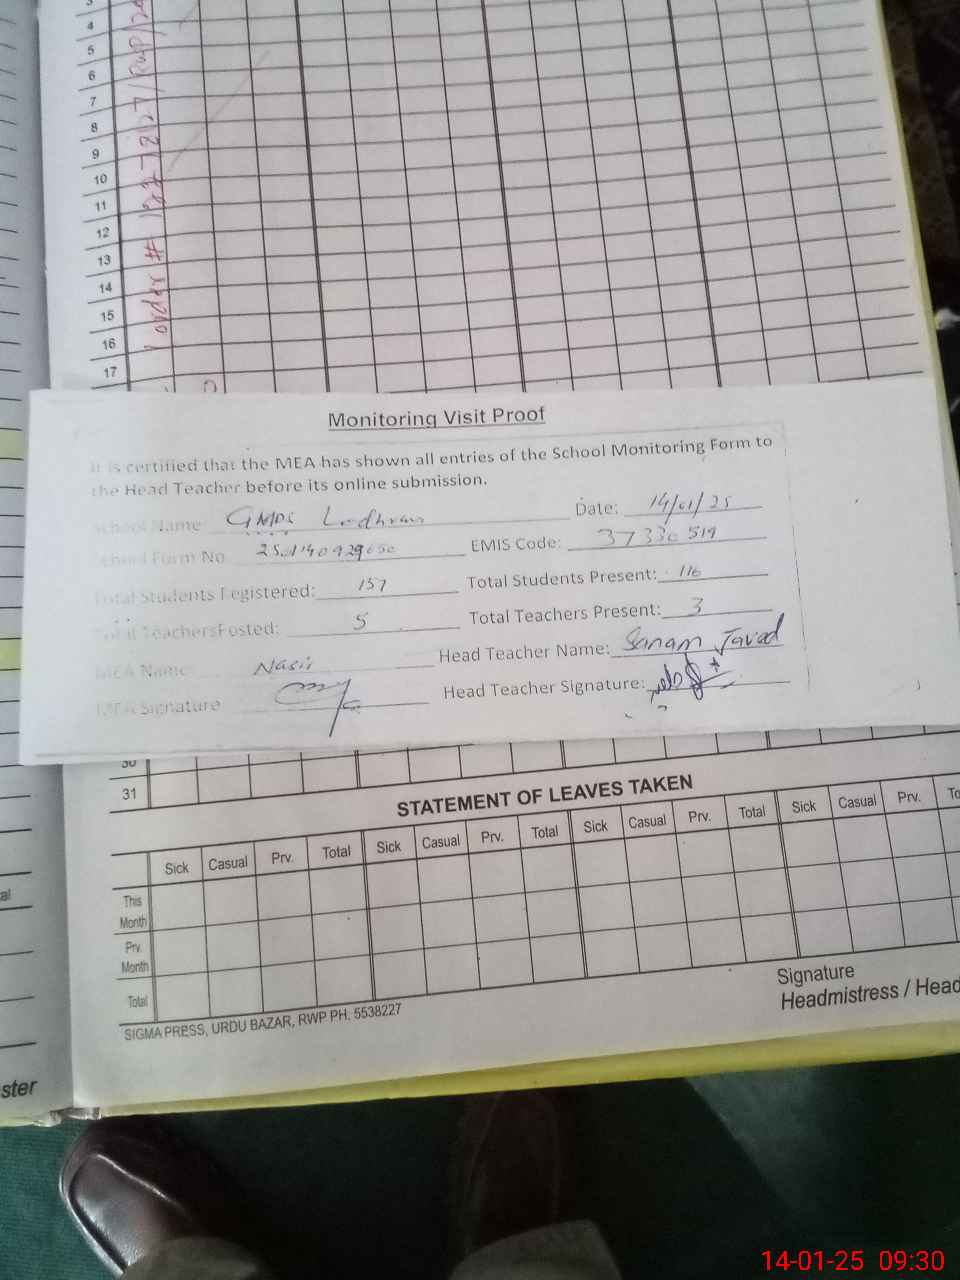 3
4
5
6
7
8
9
10
11
12
13
14
15
16
17
order #
Monitoring Visit Proof
It is certified that the MEA has shown all entries of the School Monitoring Form to
the Head Teacher before its online submission.
School Name: GMPS Ledhran Date: 14/01/25
School Form No. EMIS Code: 37330519
Total Students Registered: 157 Total Students Present: 116
Total Teachers Posted: 5 Total Teachers Present: 3
MEA Name: Nasir Head Teacher Name: Sanam Javed
MEA Signature Head Teacher Signature:
30
31
STATEMENT OF LEAVES TAKEN
Sick Casual Prv. Total Sick Casual Prv. Total Sick Casual Prv. Total Sick Casual Prv. To
This
Month
Prv.
Month
Total
Signature
Headmistress / Head
SIGMA PRESS, URDU BAZAR, RWP PH. 5538227
al
ster
14-01-25 09:30